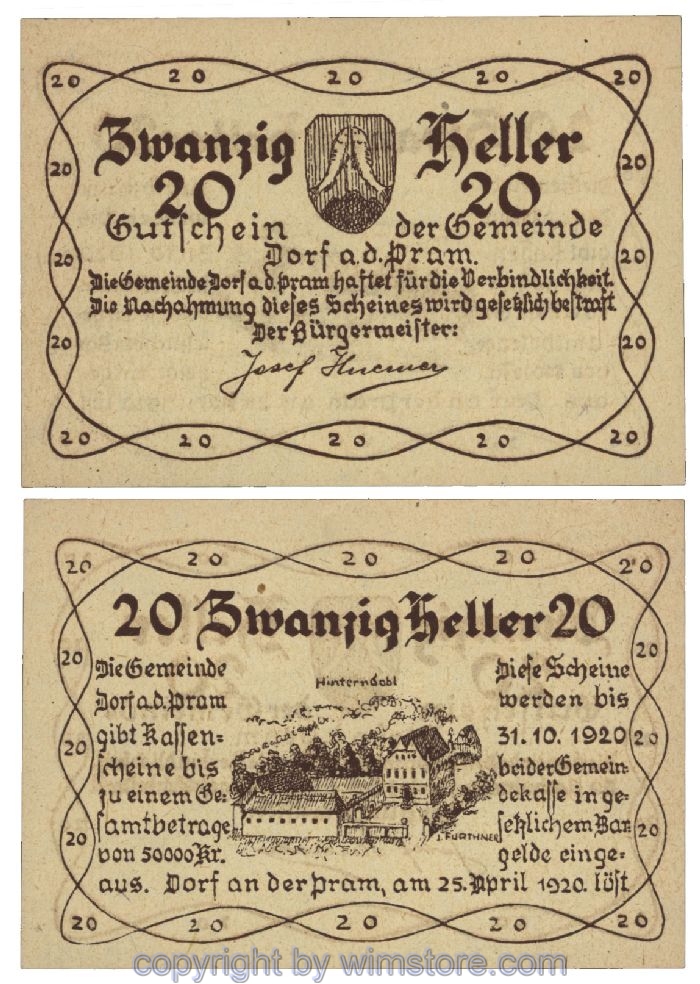 20 20 20 20 20
Zwanzig Heller
20 20
20 20
Gutschein der Gemeinde
20 Dorf a.d. Pram. 20
Die Gemeinde Dorf a.d. Pram haftet für die Verbindlichkeit.
Die Nachahmung dieses Scheines wird gesetzlich bestraft
Der Bürgermeister:
20 20
Josef Huemer
20 20 20 20 20
20 20 20 20 20
20 Zwanzig Heller 20
20 20
Die Gemeinde
Dorf a.d. Pram
gibt Kassen=
scheine bis
zu einem Ge=
samtbetrage
von 50000 Kr.
Hinterndobl
J. FURTHNER
Diese Scheine
werden bis
31.10.1920
bei der Gemein=
dekasse in ge=
setzlichem Bar=
gelde einge=
20 20
20 20
aus. Dorf an der Pram, am 25. April 1920. löst
20 20 20 20 20
copyright by wimstore.com